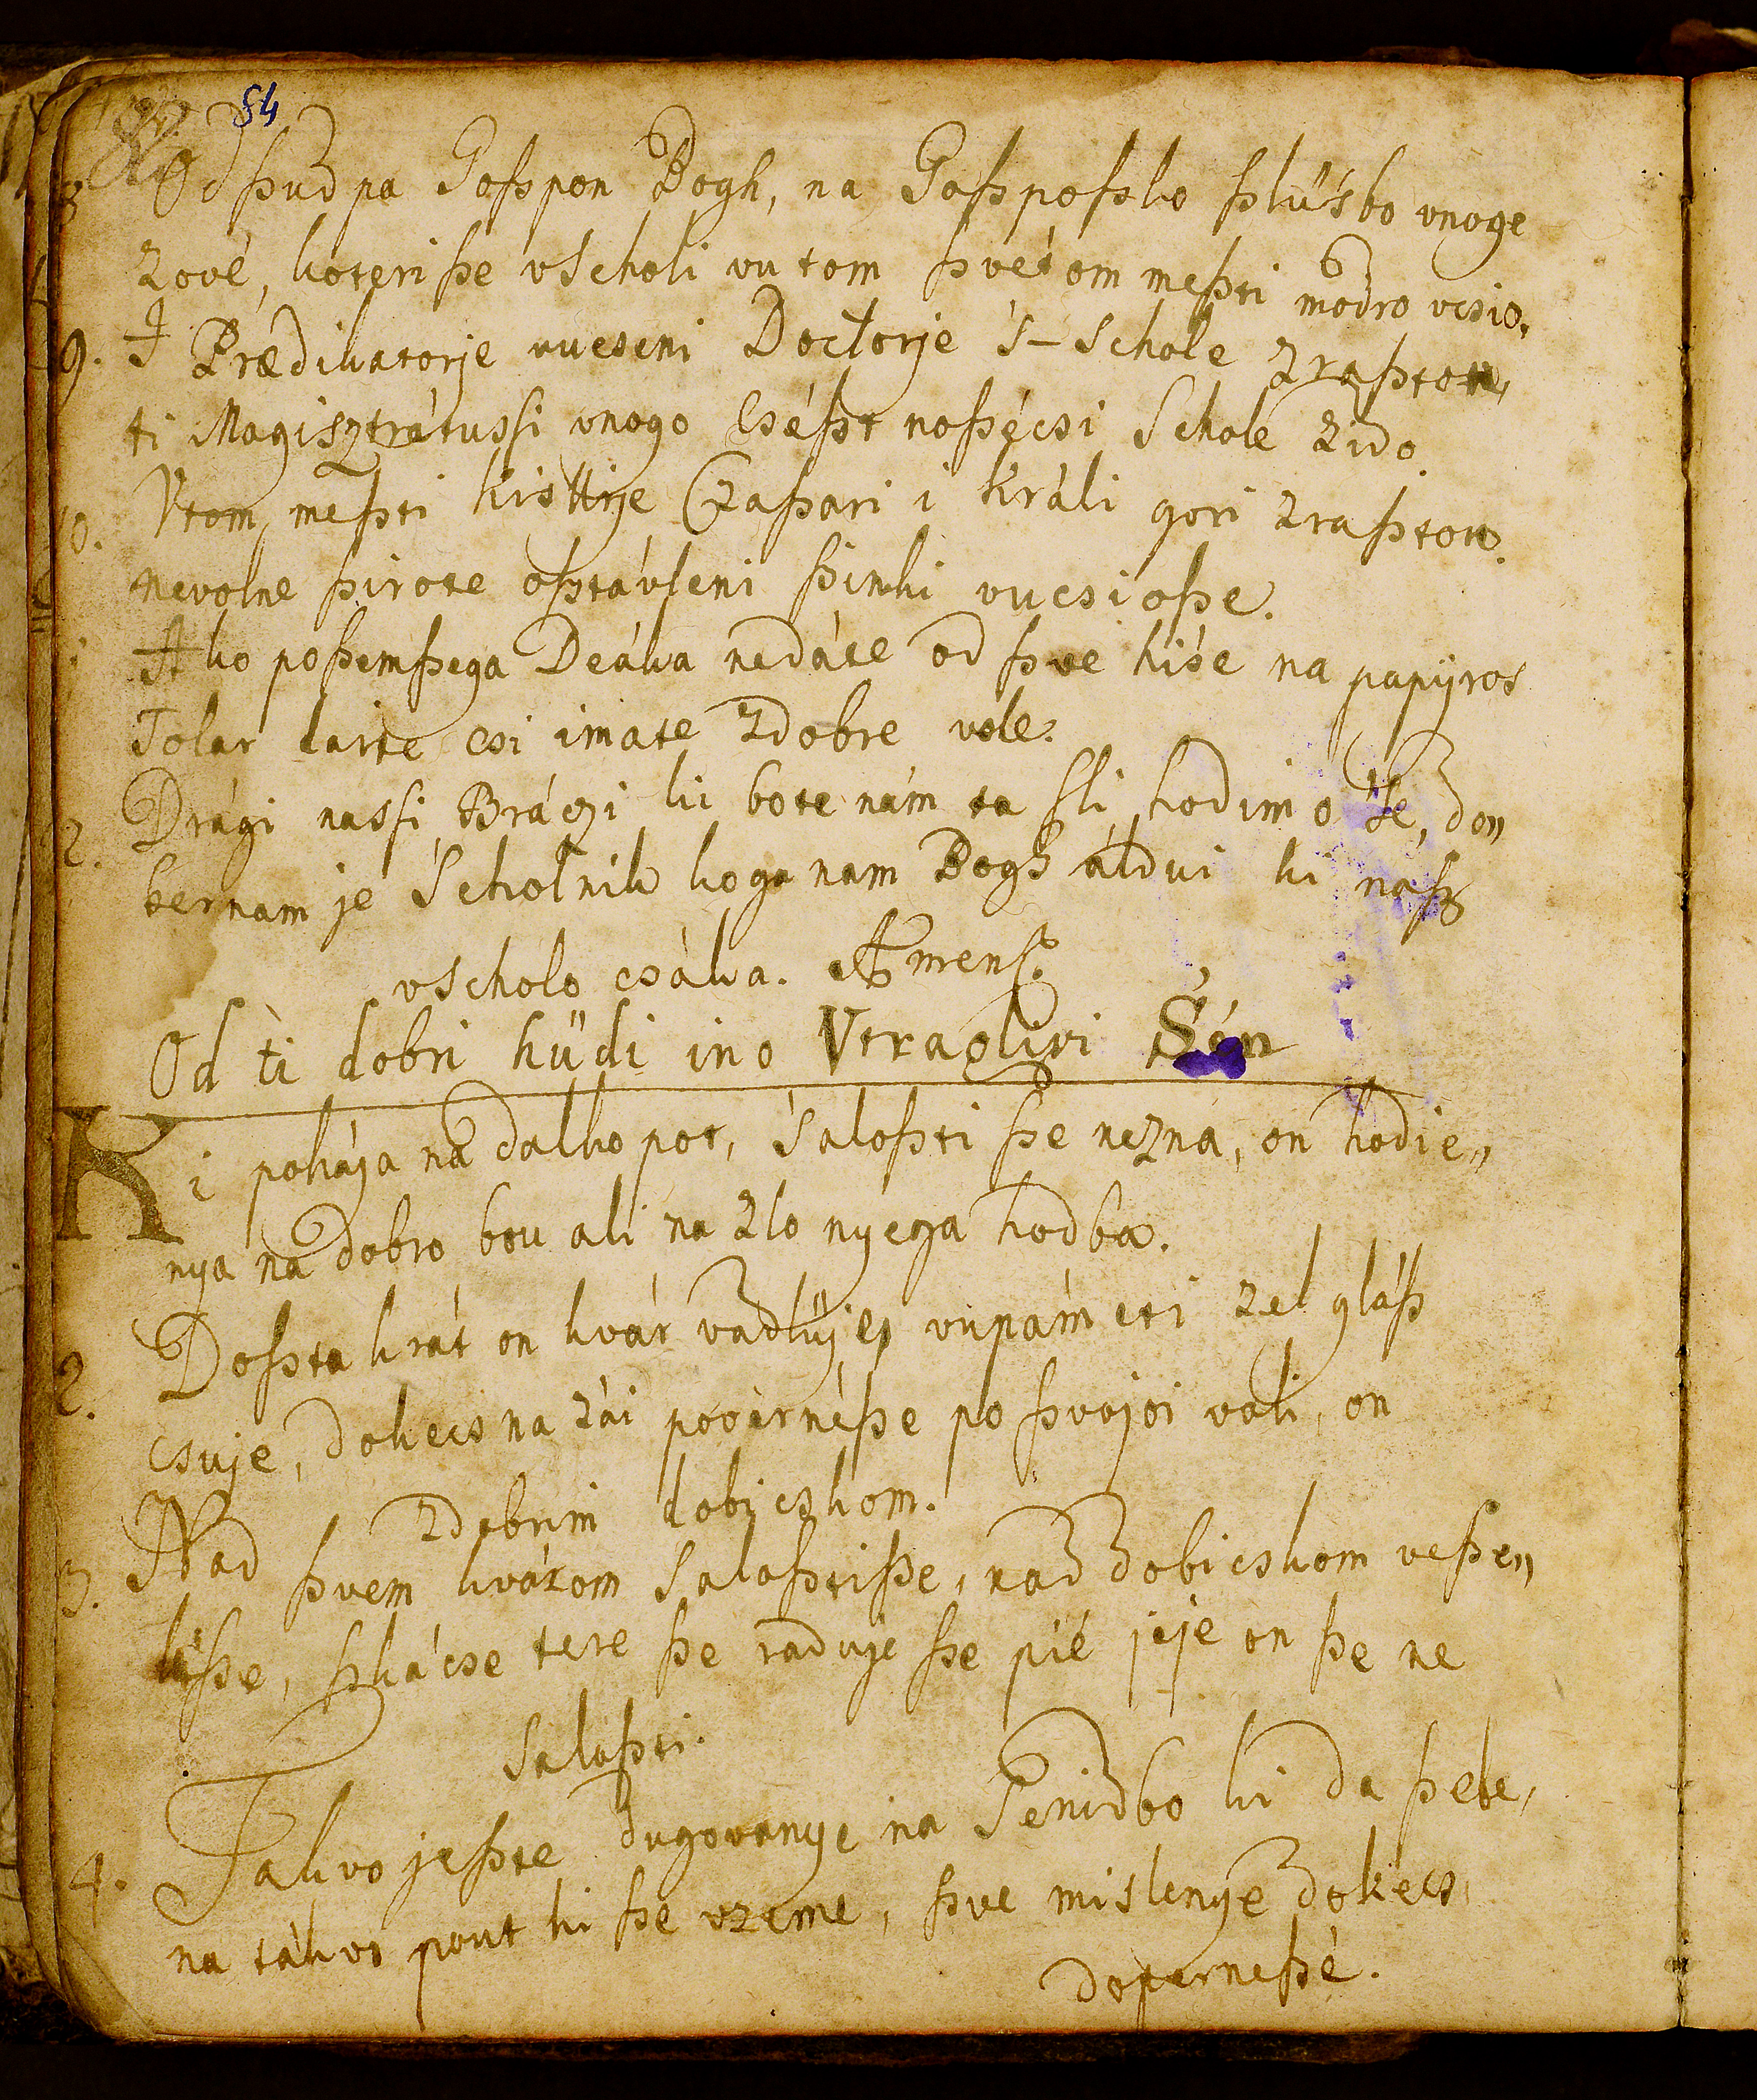 54
8. Odſzud pa Goſzpon Bogh, na Goſzpoſzko ſzlu'sbo vnoge
zové, koteri ſze vScholi vu tom ſzvétom meſzti modro vcsio,
9. I Prædikatorje vucseni Doctorje 's-Schole zraſzton,
ti Magisztrátusſi vnogo cséſzt noſzécsi Schole zido.
10. Vtom meſzti kistije Czaſzari i Králi gori zraſzton.
nevolne ſzirote oſztávleni ſzinki vucsioſze.
Ako poſzemſzega Deáka nedáte od ſzve hi'se na papÿros
Tolar daite csi imate zdobre vole.
12. Drági nasſi Bráczi ki bote nám ta ſli hodimo 'se, do„
ber nam je Scholnik koga nam Bogh áldui ki náſz
vScholo csáka. Amen.
Od ti dobri hüdi ino Vtraglivi Sén
Ki pokája na dalko pot, 'saloſzti ſze nezna, on hodie„
nya na dobro bou ali na zlo nyega hodba.
2. Doſzta krát on kvár vadlüje, vupám eti zel gláſz
csuje, dokecs na zái povérnéſze po ſzvojoi voli, on
zdobrim dobicskom.
3. Nad ſzvem kvárom 'saloſztiſze, nad dobicskom veſze„
liſze, ſzkácse tere ſze raduje ſze pié jeje on ſze ne
'saloſzti.
4. Takvo jeſzte dugovanye na 'Senidbo ki da ſzebe,
na tákvo pout ki ſze vzeme, ſzve mislenye dokecs
doperneſzé.